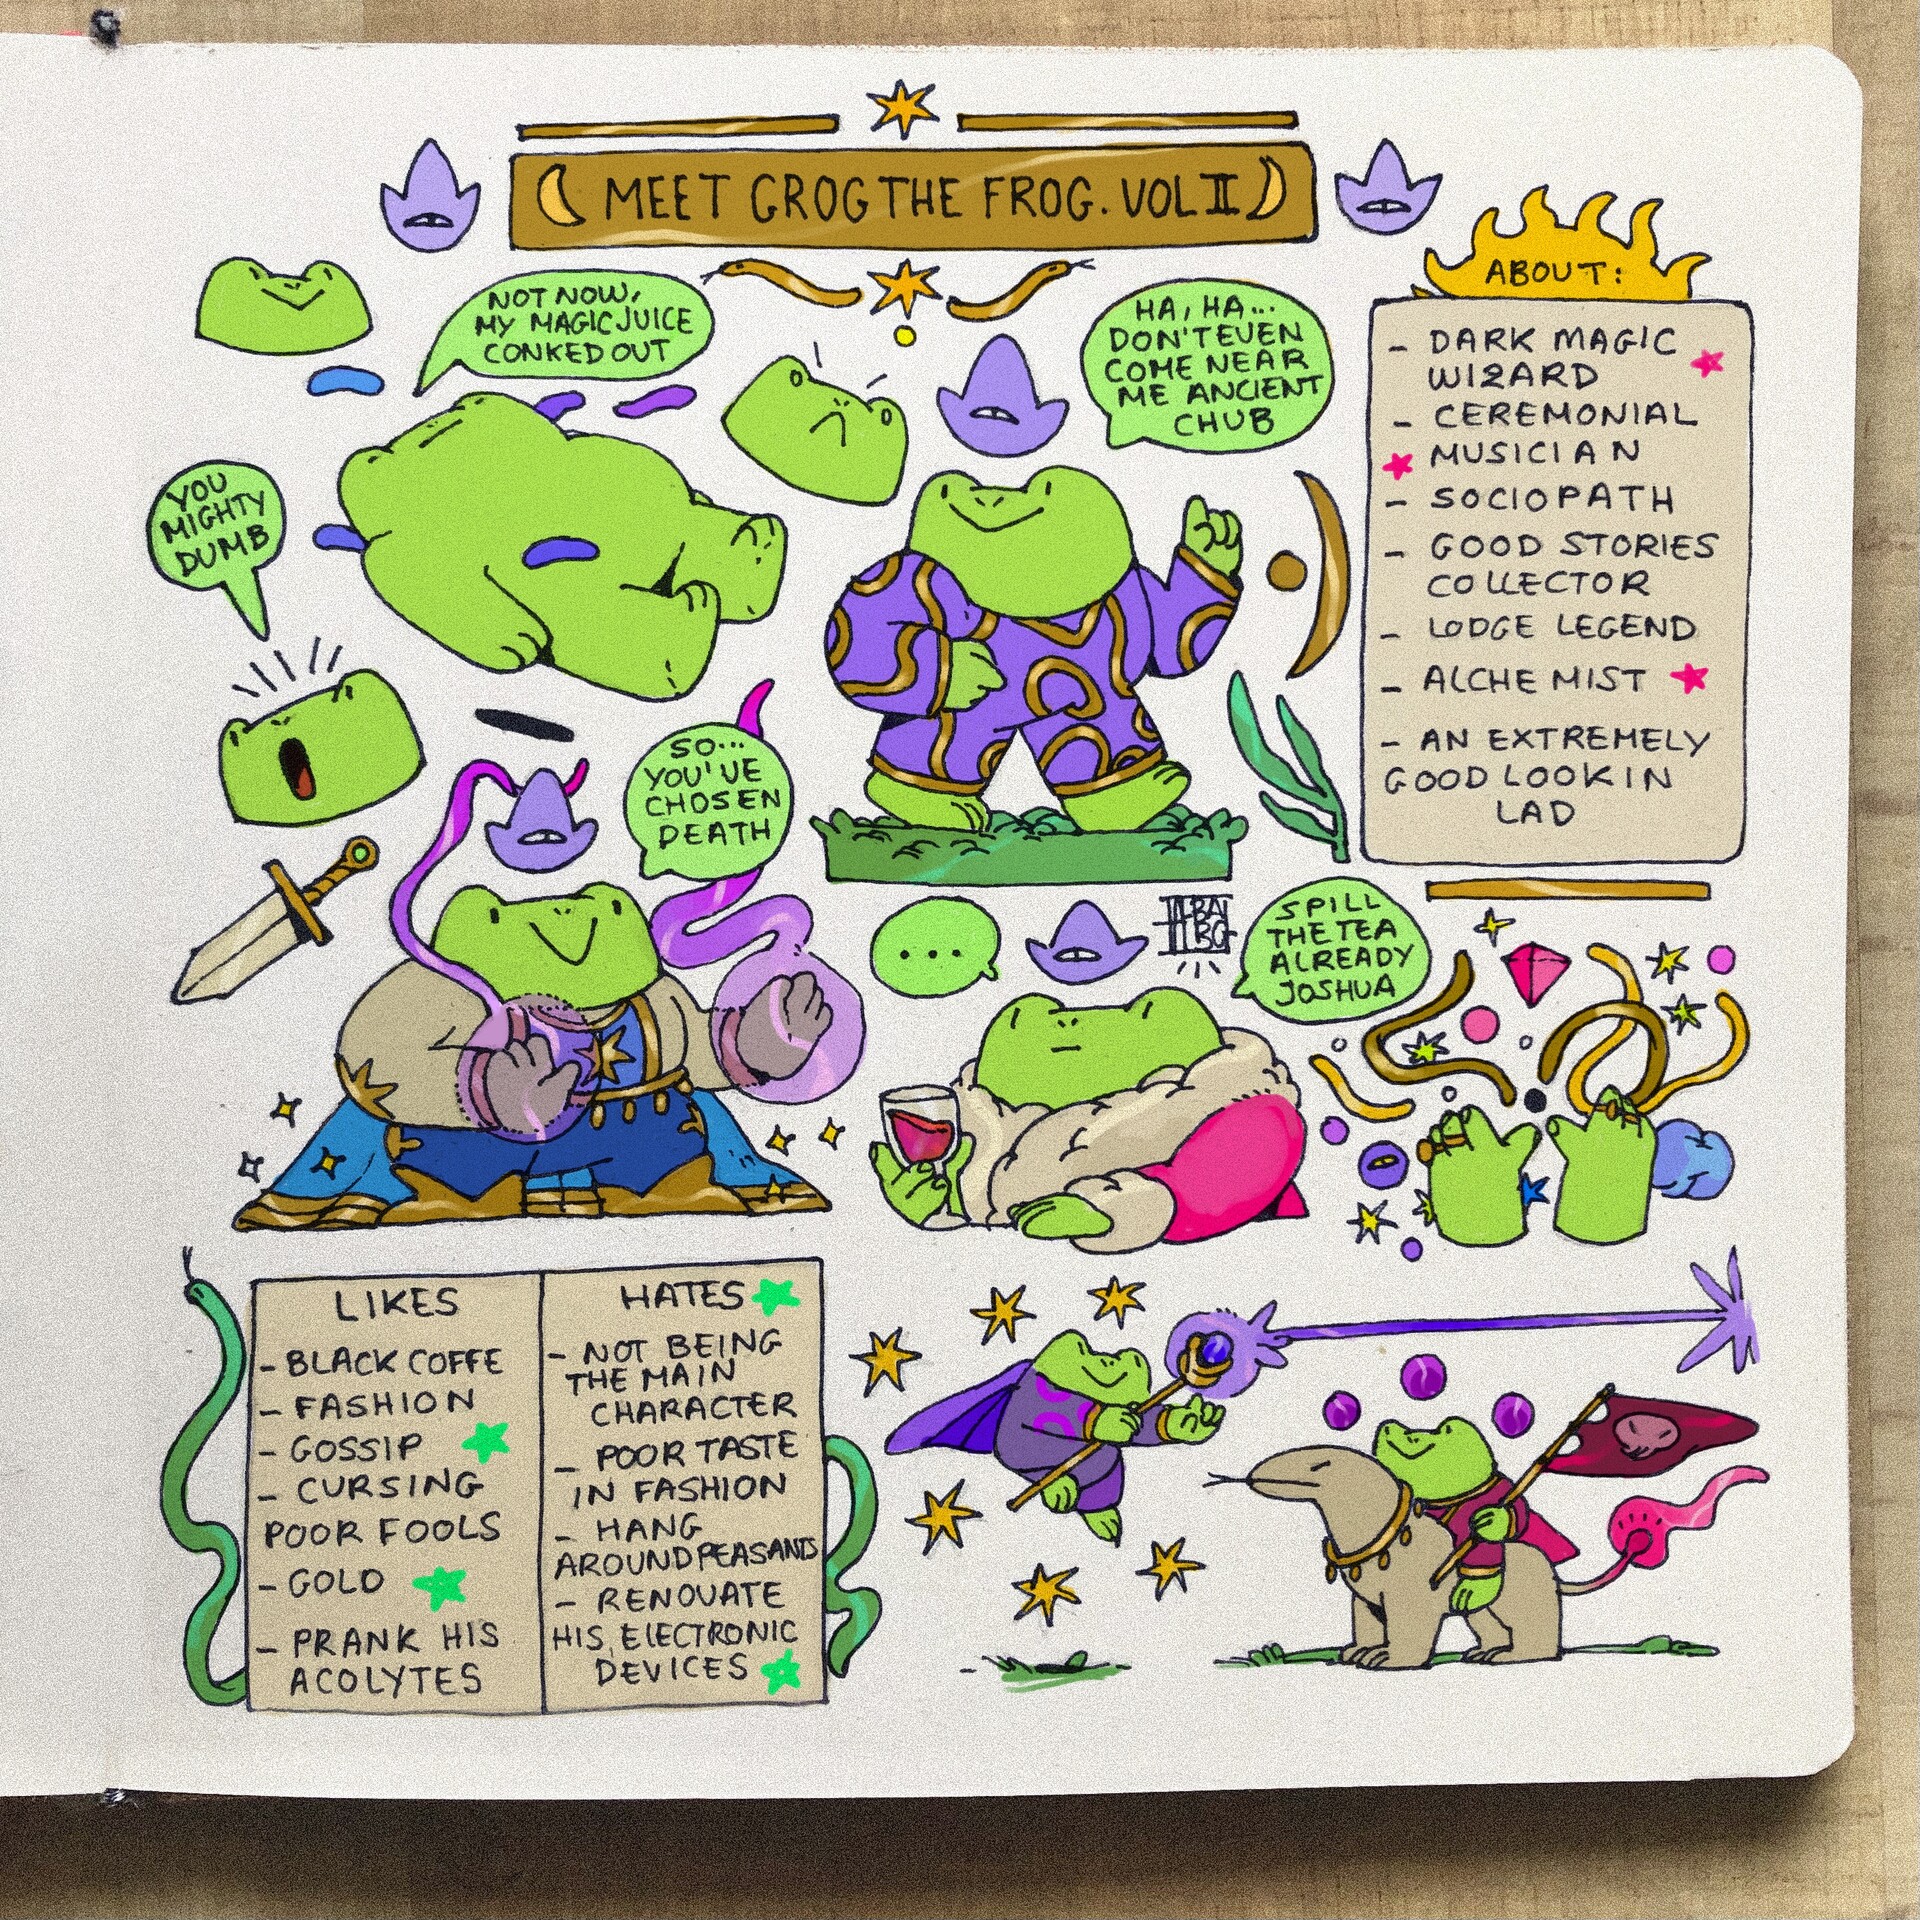 MEET GROG THE FROG. VOL II
NOT NOW,
MY MAGIC JUICE
CONKED OUT
HA, HA...
DON'T EVEN
COME NEAR
ME ANCIENT
CHUB
ABOUT:
- DARK MAGIC
WIZARD
- CEREMONIAL
MUSICIAN
- SOCIOPATH
- GOOD STORIES
COLLECTOR
- LODGE LEGEND
- ALCHEMIST
- AN EXTREMELY
GOOD LOOKIN
LAD
YOU
MIGHTY
DUMB
SO...
YOU'VE
CHOSEN
DEATH
...
SPILL
THE TEA
ALREADY
JOSHUA
LIKES
- BLACK COFFE
- FASHION
- GOSSIP
- CURSING
POOR FOOLS
- GOLD
- PRANK HIS
ACOLYTES
HATES
- NOT BEING
THE MAIN
CHARACTER
- POOR TASTE
IN FASHION
- HANG
AROUND PEASANTS
- RENOVATE
HIS ELECTRONIC
DEVICES